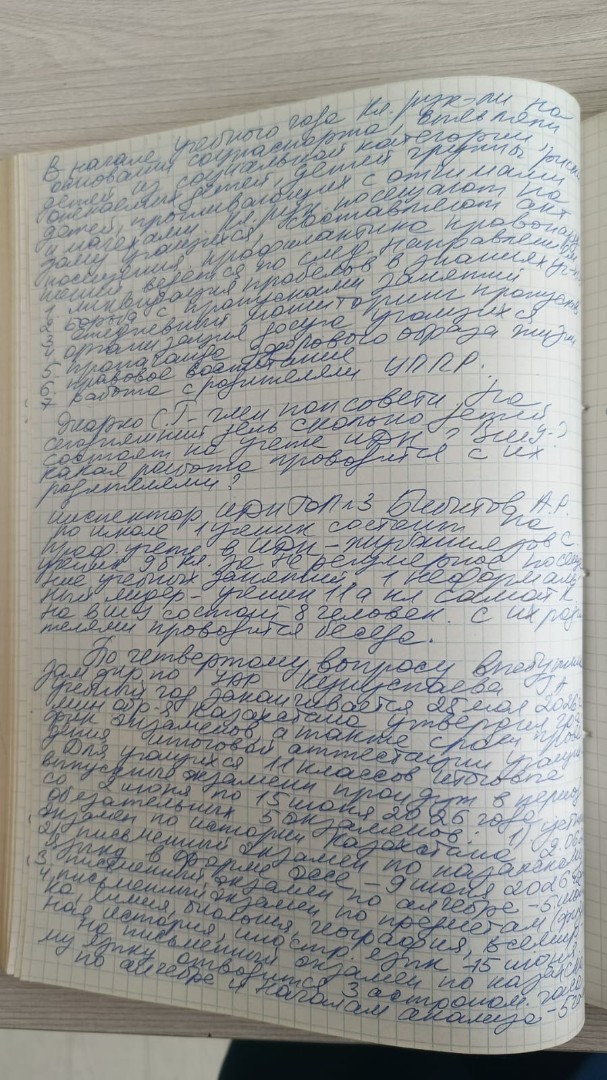 В начале учебного года кл. рук-ли на
основании соцпаспорта, выявляли
детей из социальной категории,
опекаемых детей, детей группы риска
детей, проживающих с отчимами
и мачехами. Кл. рук. посещают на
дому учащихся, составляют акт
посещения, профилактика правонару-
шений ведется по след. направлениям
1 ликвидация пробелов в знаниях уч-ся
2 борьба с пропусками занятий
3 ежедневный мониторинг пропусков
4 организация досуга учащихся
5 пропаганда здорового образа жизни
6 правовое воспитание
7 работа с родителями ЦППР.
С.Т - член попсовета. На
сегодняшний день сколько детей
состоит на учете ИДН? ВШУ-?
какая работа проводится с их
родителями?
инспектор ИДН А.Р.
по школе 1 ученик состоит на
проф. учете в ИДН -
ученик 9б кл. за нерегулярное посеще-
ние учебных занятий. 1 неформаль-
ный лидер - ученик 11а кл
на ВШУ состоит 8 человек. с их роди-
телями проводится беседа.
По четвертому вопросу выступила
зам дир по УВР Г.А
учебный год заканчивается 25 мая 2026г
мин обр-я Казахстана утвердил гра-
фик экзаменов, а также сроки прове-
дения итоговой аттестации учащихся
Для учащихся 11 классов итоговые
выпускные экзамены пройдут в период
со 2 июня по 15 июня 2026 года
обязательных 5 экзаменов: 1) устный
экзамен по истории Казахстана 2.06.
2) письменный экзамен по казахскому
языку в форме эссе - 9 июня 2026 г
3. письменный экзамен по алгебре - 5 июня
4. письменный экзамен по предметам (физи-
ка, химия, биология, география, всемир-
ная история, иностр. язык - 15 июня
На письменный экзамен по казахско-
му языку отводится 3 астроном. часа
по алгебре и началам анализа - 5